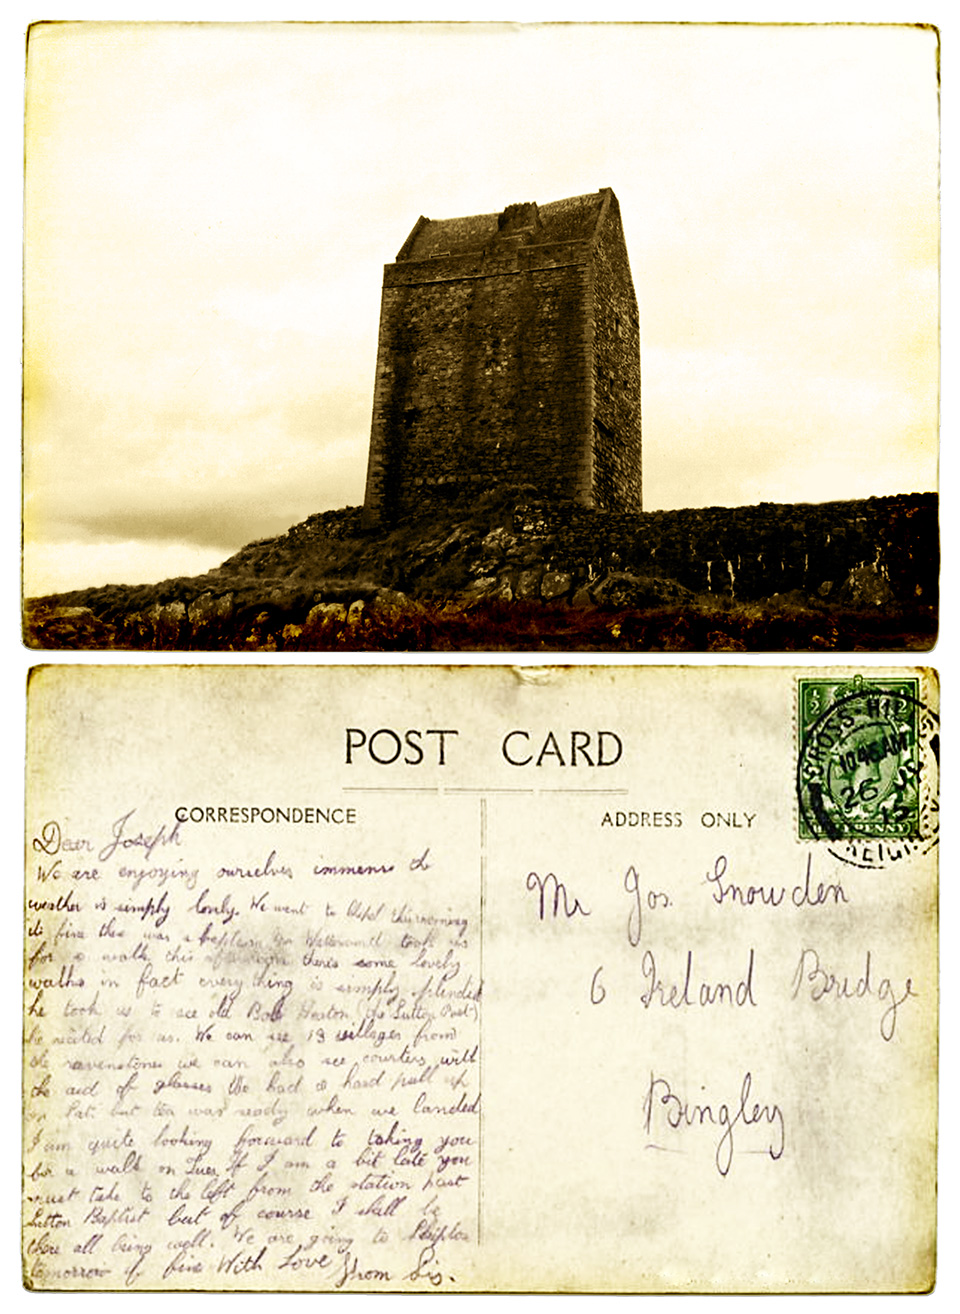 POST CARD
CORRESPONDENCE
ADDRESS ONLY
½
CROSS-HI
10.45 AM
26
Dear Joseph
We are enjoying ourselves immense the
weather is simply lovely. We went to this morning
fine there was a took us
for a walk this afternoon there's some lovely
walks in fact every thing is simply splendid
he took us to see old Bob Heaton (the Sutton Poet)
he recited for us. We can see 13 villages from
the ravenstones we can also see with
the aid of glasses We had a hard pull up
on Sat. but tea was ready when we landed
I am quite looking forward to taking you
for a walk on Tues. If I am a bit late you
must take to the left from the station past
Sutton Baptist but of course I shall be
there all being well. We are going to
tomorrow if fine With Love from Sis.
Mr Jos. Snowden
6 Ireland Bridge
Bingley